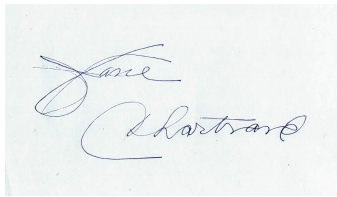 Jane
Chartrand